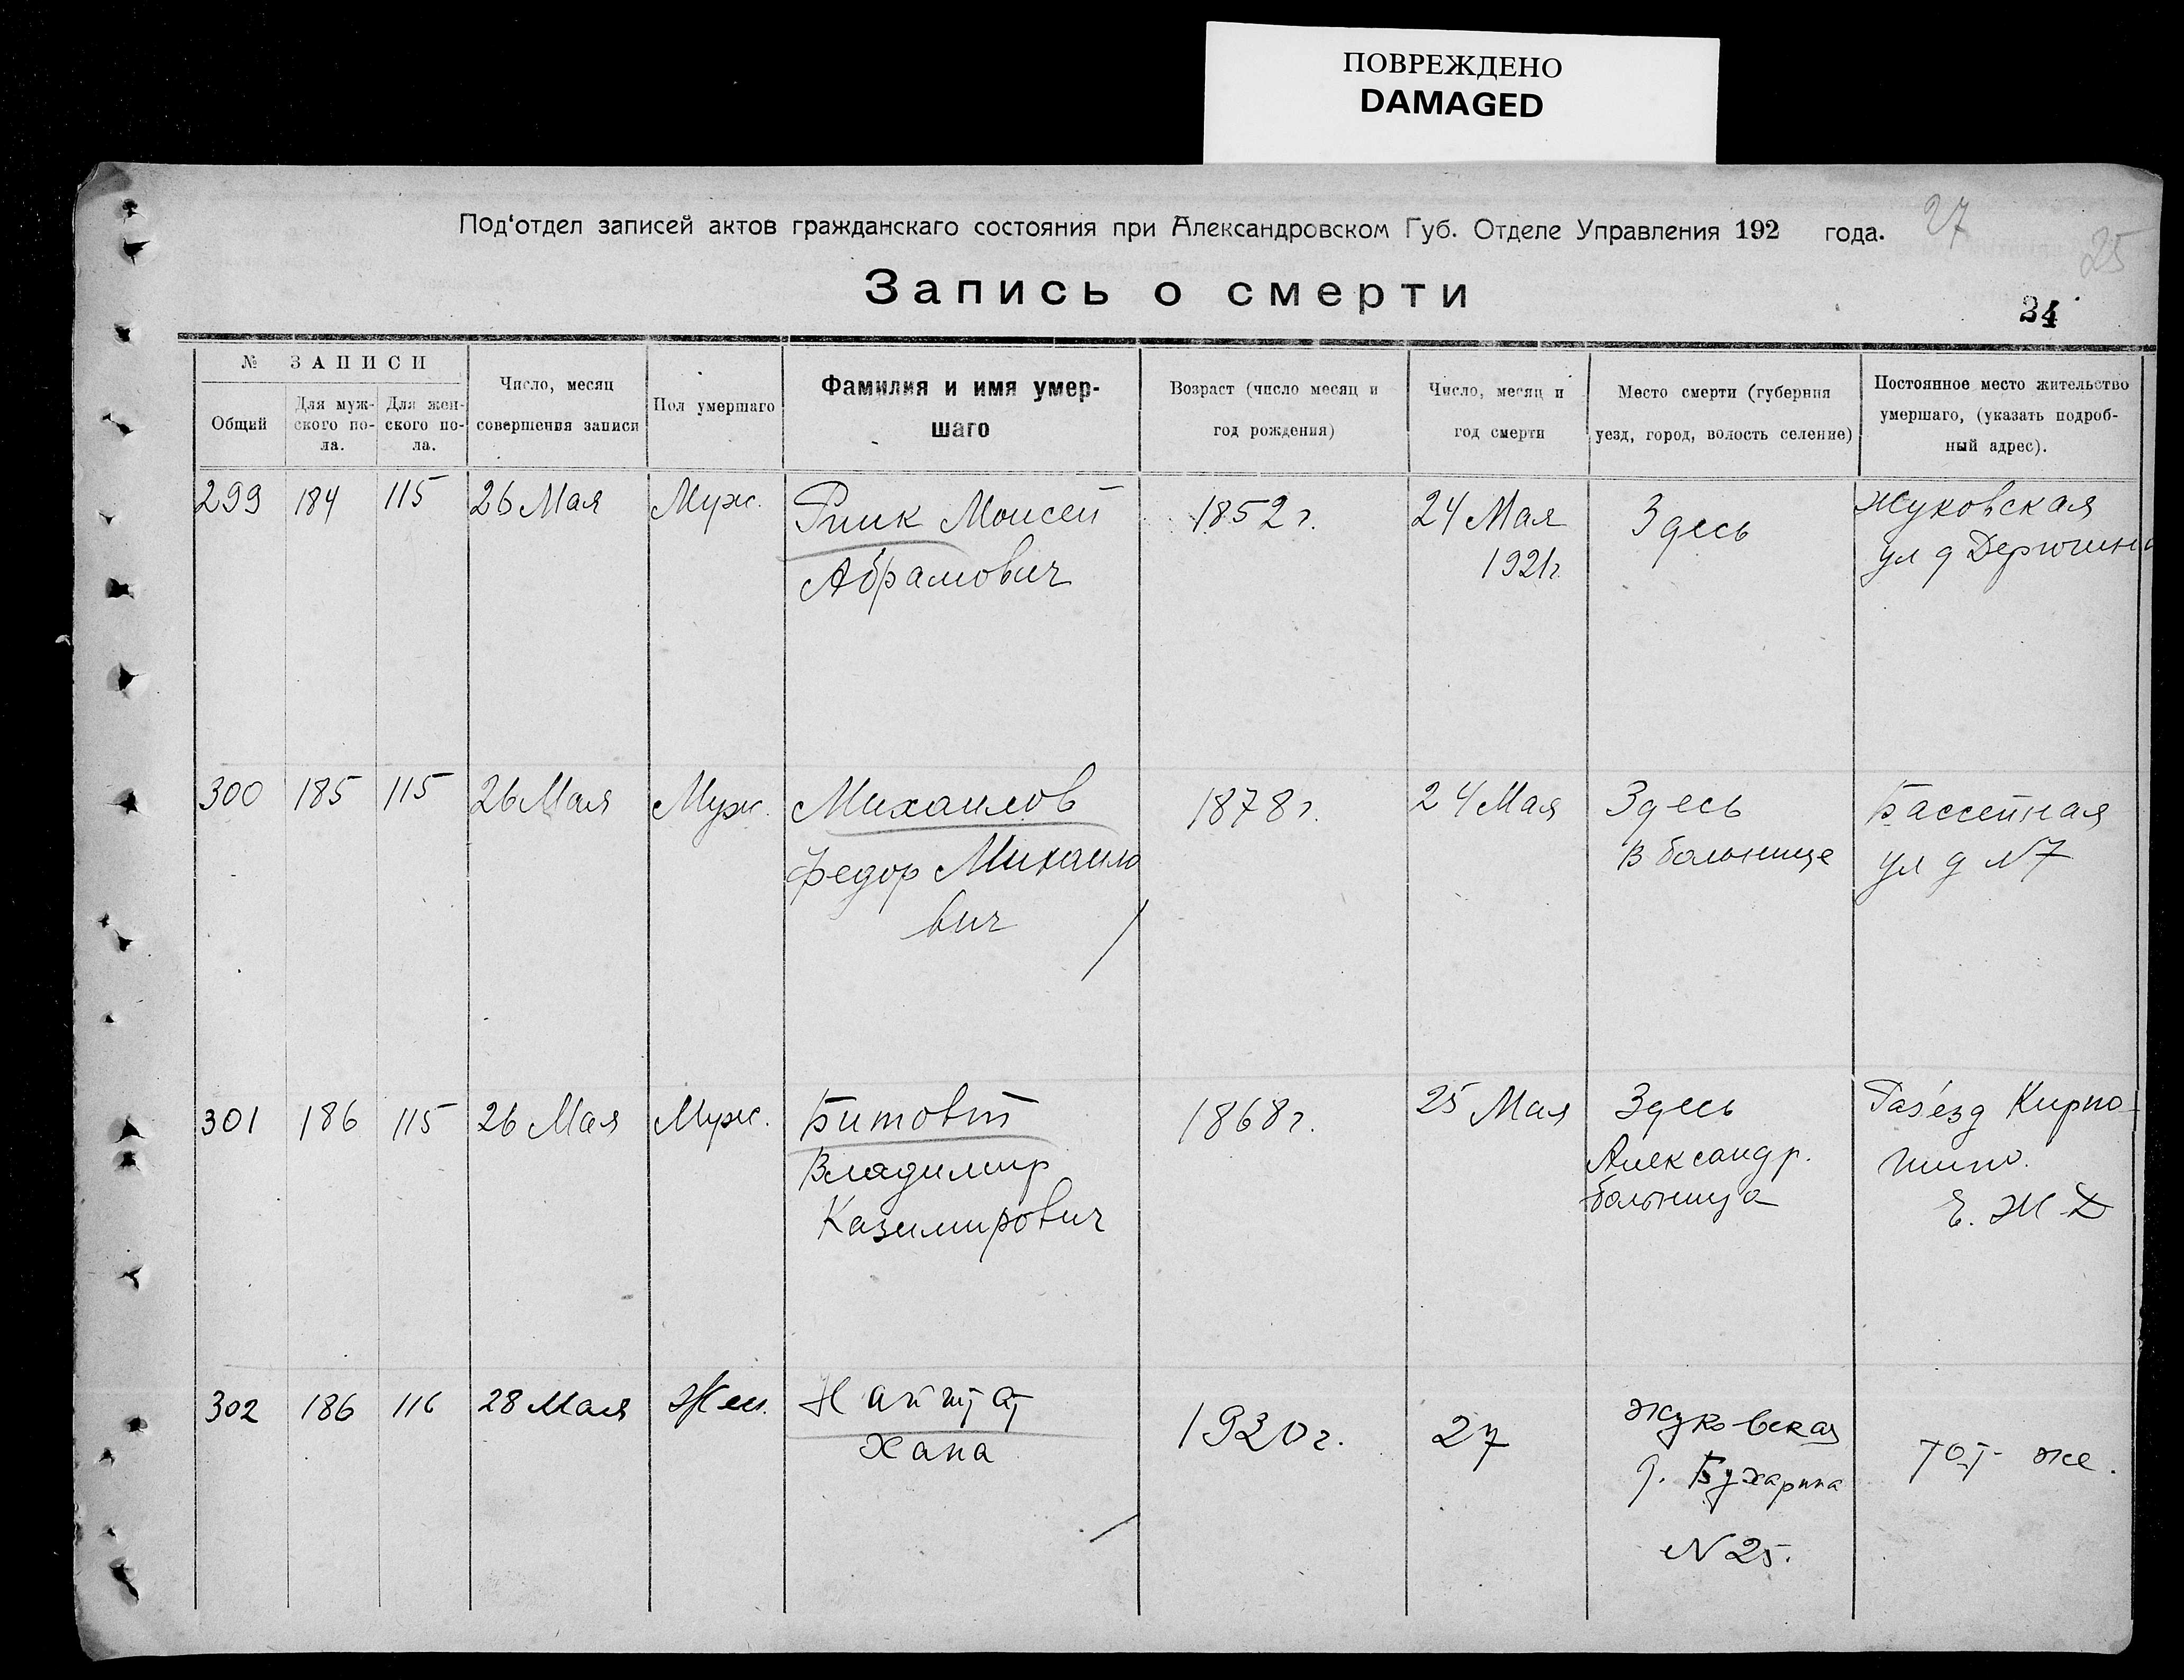 ПОВРЕЖДЕНО
DAMAGED
27
25
Под'отдел записей актов гражданскаго состояния при Александровском Губ. Отделе Управления 192 года.
Запись о смерти
34
№ ЗАПИСИ
Общий
Для муж-
ского по-
ла.
Для жен-
ского по-
ла.
Число, месяц
совершения записи
Пол умершаго
Фамилия и имя умер-
шаго
Возраст (число месяц и
год рождения)
Число, месяц и
год смерти
Место смерти (губерния
уезд, город, волость селение)
Постоянное место жительство
умершаго, (указать подроб-
ный адрес).
299
184
115
26 Мая
Муж.
Моисей
Абрамович
1852 г.
24 Мая
1921 г.
Здесь
Жуковская
ул д
300
185
115
26 Мая
Муж.
Михайлов
Федор Михайло
вич
1878 г.
24 Мая
Здесь
В больнице
Бассейная
ул д №7
301
186
115
26 Мая
Муж.
Битовт
Владимир
Казимирович
1868 г.
25 Мая
Здесь
Александр.
больница
Раз'езд Кирпо-
тино.
Е. Ж Д
302
186
116
28 Мая
Жен.
Хана
1920 г.
27
Жуковская
д. Бухарина
№ 25.
тот же.